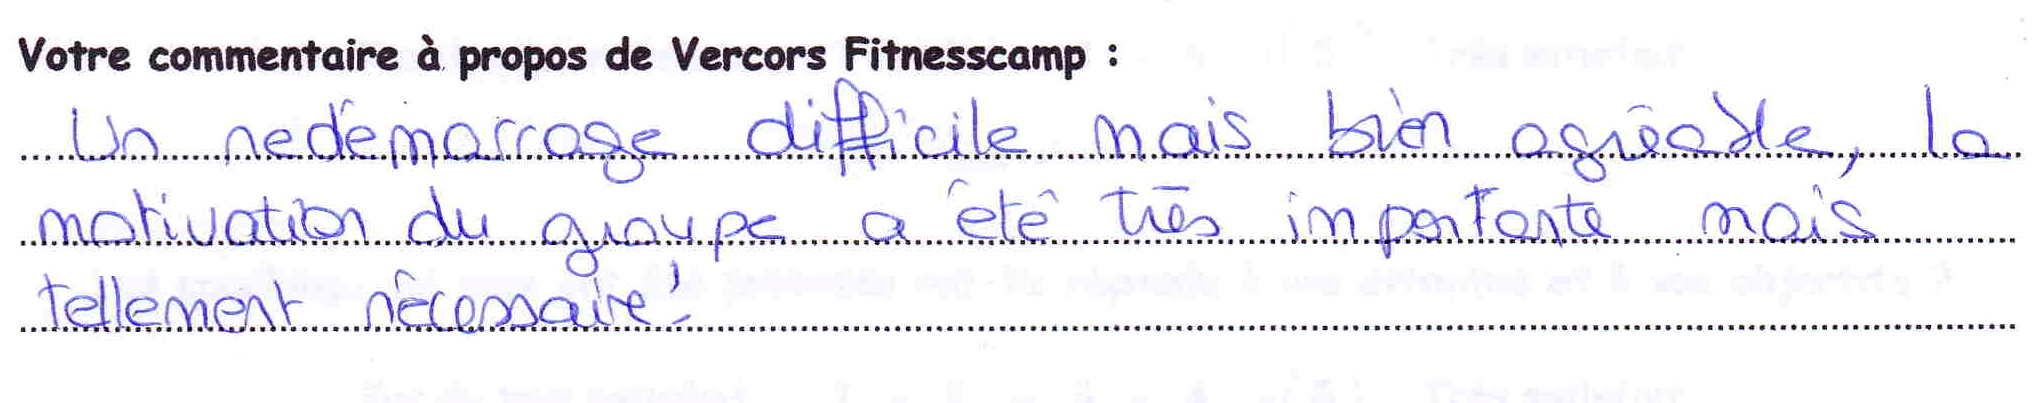 Votre commentaire à propos de Vercors Fitnesscamp :
Un redémarrage difficile mais bien agréable, la
motivation du groupe a été très importante mais
tellement nécessaire !